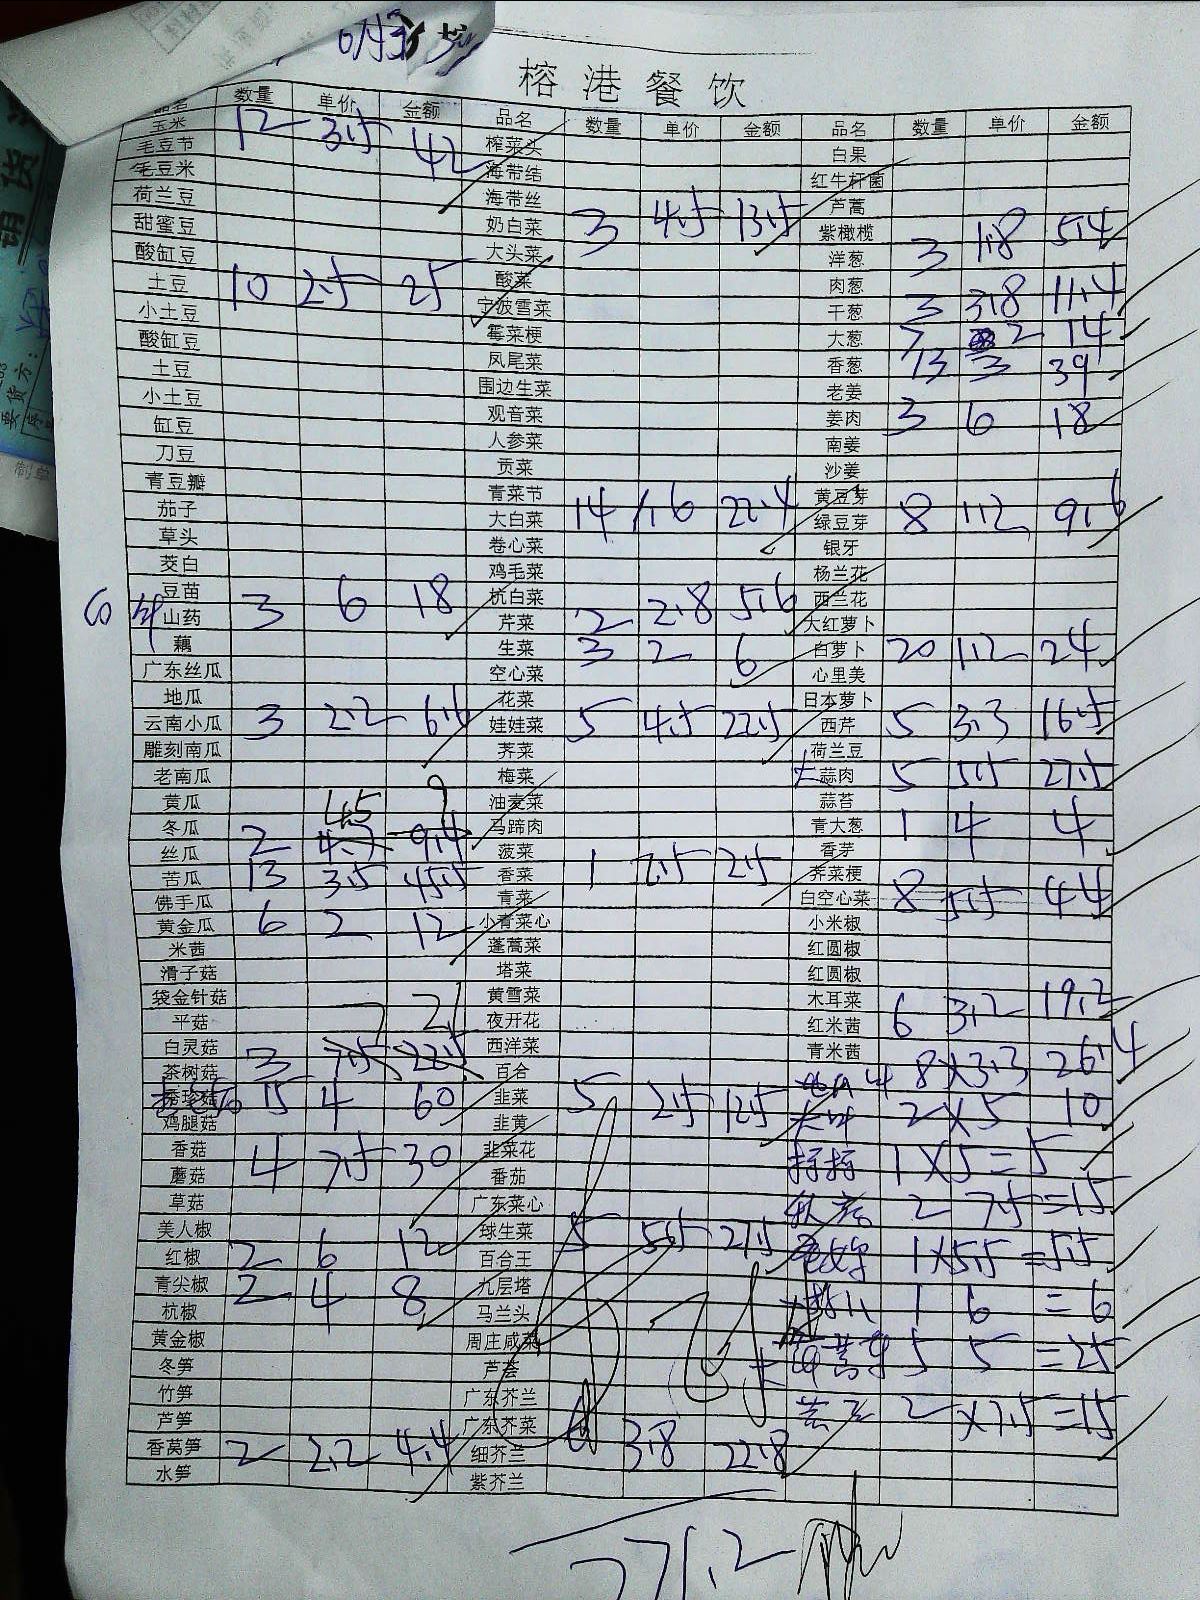 榕港餐饮
品名 数量 单价 金额 品名 数量 单价 金额 品名 数量 单价 金额
玉米 12 3.5 42 榨菜头 白果
毛豆节 海带结 红牛杆菌
毛豆米 海带丝 芦蒿
荷兰豆 奶白菜 3 4.5 13.5 紫橄榄
甜蜜豆 大头菜 洋葱 3 1.8 5.4
酸缸豆 酸菜 肉葱
土豆 10 2.5 25 宁波雪菜 干葱 3 3.8 11.4
小土豆 霉菜梗 大葱 7 2 14
酸缸豆 凤尾菜 香葱 13 3 39
土豆 围边生菜 老姜
小土豆 观音菜 姜肉 3 6 18
缸豆 人参菜 南姜
刀豆 贡菜 沙姜
青豆瓣 青菜节 黄豆芽
茄子 大白菜 14 1.6 22.4 绿豆芽 8 1.2 9.6
草头 卷心菜 银牙
茭白 鸡毛菜 杨兰花
豆苗 杭白菜 西兰花
山药 3 6 18 芹菜 2 2.8 5.6 大红萝卜
藕 生菜 3 2 6 白萝卜 20 1.2 24
广东丝瓜 空心菜 心里美
地瓜 花菜 日本萝卜
云南小瓜 3 2.2 6.6 娃娃菜 5 4.5 22.5 西芹 5 3.3 16.5
雕刻南瓜 荠菜 荷兰豆
老南瓜 梅菜 蒜肉 5 5.5 27.5
黄瓜 4.5 9 油麦菜 蒜苔
冬瓜 2 9.4 马蹄肉 青大葱 1 4 4
丝瓜 菠菜 香芋
苦瓜 13 3.5 45.5 香菜 1 2.5 2.5 荠菜梗
佛手瓜 青菜 白空心菜 8 5.5 44
黄金瓜 6 2 12 小青菜心 小米椒
米茜 蓬蒿菜 红圆椒
滑子菇 塔菜 红圆椒
袋金针菇 黄雪菜 木耳菜
平菇 7 21 夜开花 红米茜 6 3.2 19.2
白灵菇 3 7.5 22.5 西洋菜 青米茜 8×3.3 26.4
茶树菇 百合
秀珍菇 15 4 60 韭菜 5 2.5 12.5 2×5 10
鸡腿菇 韭黄
香菇 4 7.5 30 韭菜花 1×5=5
蘑菇 番茄
草菇 广东菜心 秋葵 2 7.5=15
美人椒 球生菜 5 5.5 27.5
红椒 2 6 12 百合王 1×5.5=5.5
青尖椒 2 4 8 九层塔 1 6=6
杭椒 马兰头
黄金椒 周庄咸菜 5 5=25
冬笋 芦荟
竹笋 广东芥兰 2×7.5=15
芦笋 广东芥菜
香莴笋 2 2.2 4.4 细芥兰 6 3.8 22.8
水笋 紫芥兰
771.2